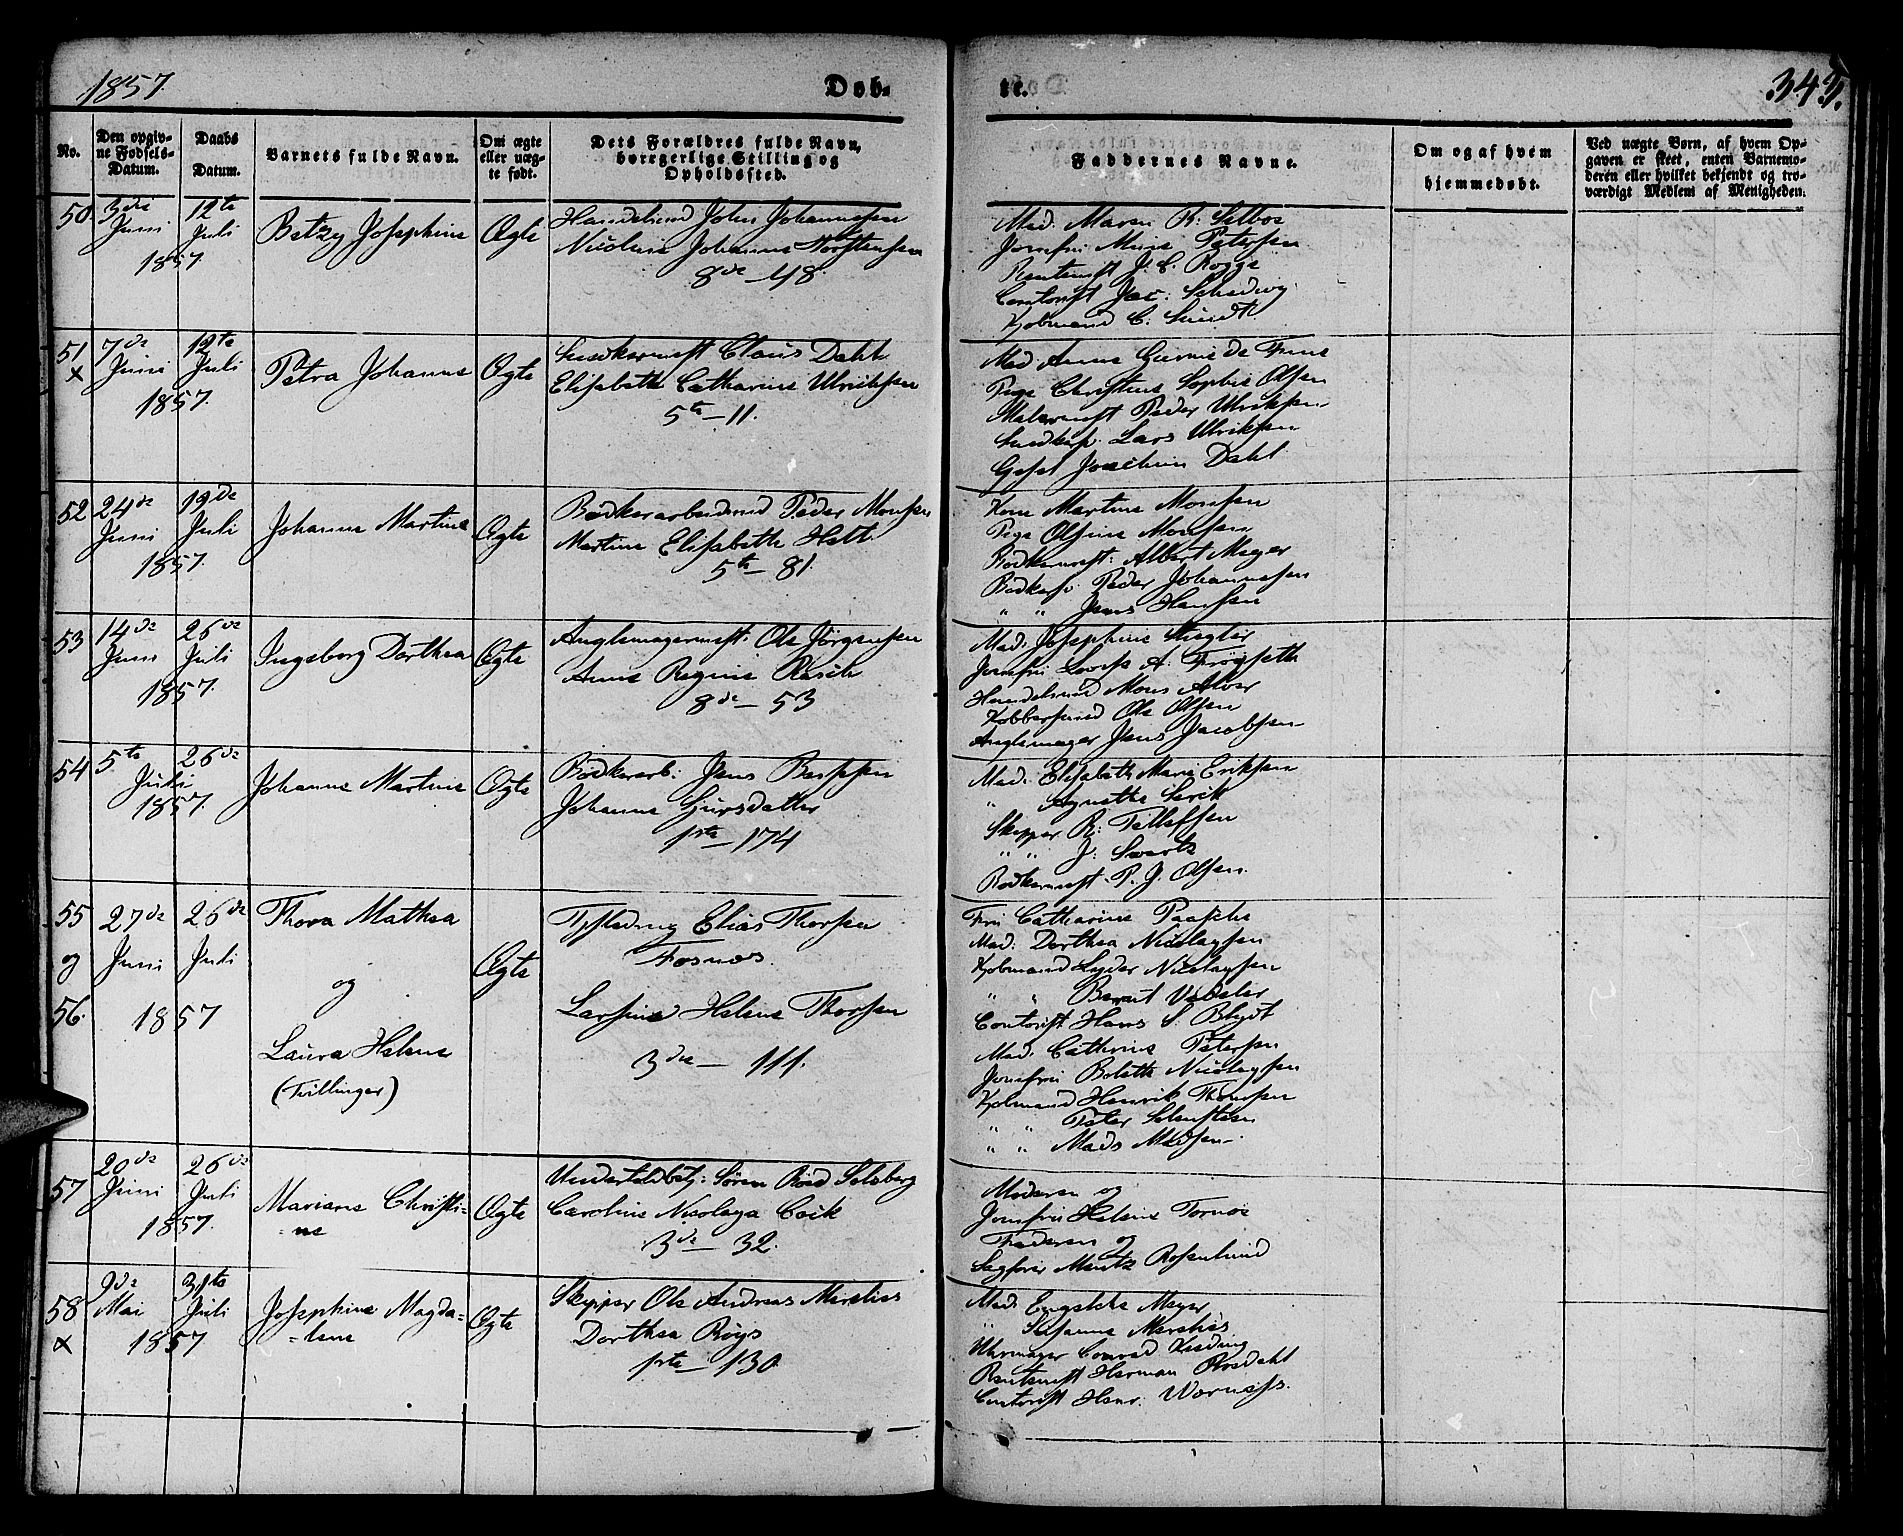 1857.
Døb-
te.
343.
No.
Den opgiv-
ne Fødsels-
Datum.
Daabs
Datum.
Barnets fulde Navn.
Om ægte
eller uæg-
te født.
Dets Forældres fulde Navn,
borgerlige Stilling og
Opholdssted.
Faddernes Navne.
Om og af hvem
hjemmedøbt.
Ved uægte Børn, af hvem Op-
gaven er skeet, enten Barnemo-
deren eller hvilket bekjendt og tro-
værdigt Medlem af Menigheden.
50.
3die
Juni
12te
Juli
1857.
Betzy Josephine
Ægte
Handelsmd John Johannessen
Nicoline Johanne Torstensen
8de - 48.
Mad. Maren R.
Jomfru Petersen
J. C. Rogge
Contorist Jac.
Kjøbmand C. Sundt
51
x
7de
Juni
12te
Juli
1857.
Petra Johanne
Ægte
Snedkermest Claus Dahl
Elisabeth Catharine Ulrichsen
5te - 11.
Mad. Anne
Pige Christine Sophie Olsen
Malermest Peder Ulriksen
Snedkers. Lars Ulriksen
Joachim Dahl
52
24de
Juni
19de
Juli
1857.
Johanne Martine
Ægte
Bødkerarbeidsmd Peder Monsen
Martine Elisabeth Hatt
5te - 81.
Kone Martine Monsen
Pige Olsine Monsen
Bødkermest: Albert Meyer
Bødkers. Peder Johannesen
" " Jens Hansen
53
14de
Juni
26de
Juli
1857.
Ingeborg Dorthea
Ægte
Anglemagermest. Ole Jörgensen
Anne Regine Rasch
8de - 53
Mad. Josephine
Jomfru A.
Handelsmd Mons Alver
Ole Olsen
Anglemager Jens Jacobsen
54
5te
Juli
26de
1857.
Johanne Martine
Ægte
Bødkerarb: Jens
Johanne
1ste - 174
Mad. Elisabeth Marie Eriksen
" Agnethe
Skipper R: Tellefsen
" " J:
Bødkermest. P. J. Olsen.
55
og
56.
27de
Juni
26de
Juli
1857
Thora Mathea
og
Laura Helene
(Tvillinger)
Ægte
Elias Thorsen
Larsine Helene Thorsen
3die - 111.
Fru Catharine Paasche
Mad: Dorthea Nicolaysen
Kjøbmand Lyder Nicolaysen
" " Berent Vedeler
Contorist Hans S. Blydt
Mad. Cathrine Petersen
Jomfru Bolette Nicolaysen
Kjøbmand Henrik
" " Peter
" " Mads Madsen
57
20de
Juni
26de
Juli
1857.
Mariane Christi-
-ne
Ægte
Undertoldbetj: Sören Solberg
Caroline Nicolaya Cock
3de - 32.
Moderen og
Jomfru Helene Tornöe
Faderen og
Sagfører Müntz Rosenlund
58
x
9de
Mai
31te
Juli
1857
Josephine Magda-
-lene
Ægte
Skipper Ole Andreas
Dorthea
1ste - 130
Mad. Engelche Meyer
" Susanne
Uhrmager Conrad
Herman
Contorist Henr.